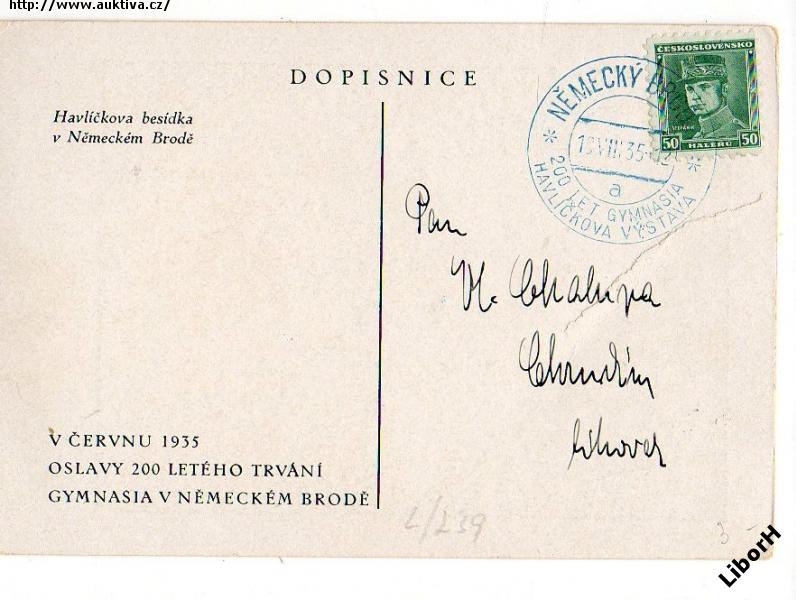 http://www.auktiva.cz/
DOPISNICE
Havlíčkova besídka
v Německém Brodě
ČESKOSLOVENSKO
50 HALÉRŮ 50
NĚMECKÝ
VIII 35
a
200 LET GYMNASIA
HAVLÍČKOVA VÝSTAVA
Pan
Chalupa
Chrudim
V ČERVNU 1935
OSLAVY 200 LETÉHO TRVÁNÍ
GYMNASIA V NĚMECKÉM BRODĚ
L/239
3 -
LiborH